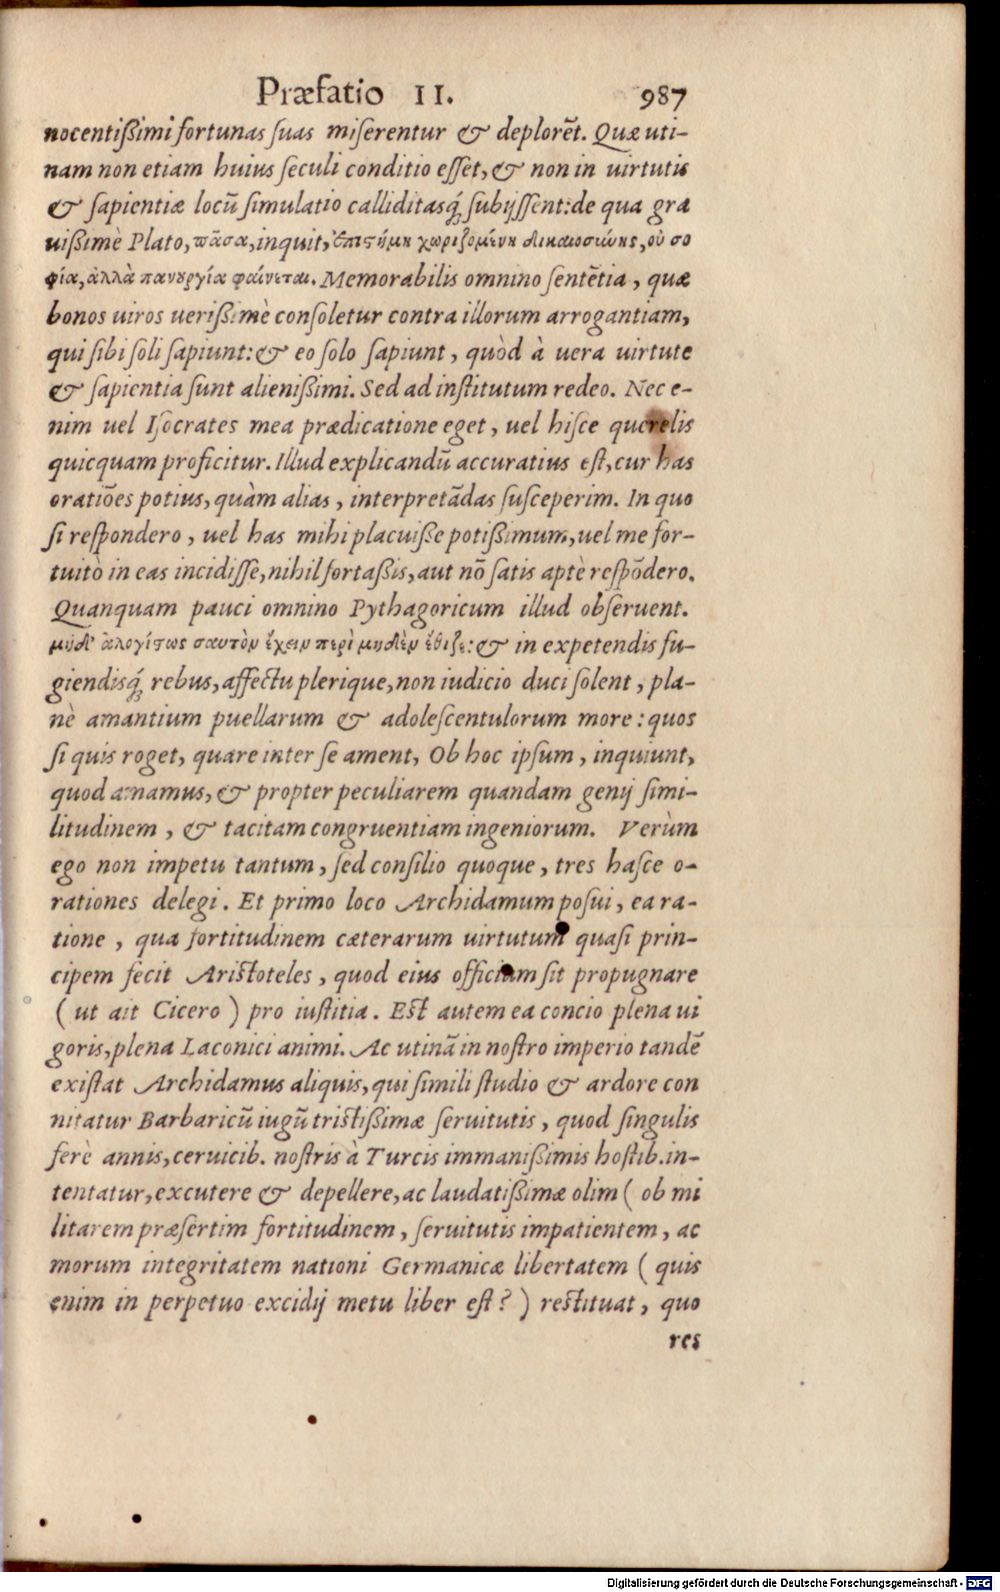 Præfatio II. 987
nocentißimi fortunas suas miserentur & deplorēt. Quæ uti-
nam non etiam huius seculi conditio esset, & non in uirtutis
& sapientiæ locū simulatio calliditasq́; subijssent: de qua gra
uißimè Plato, πᾶσα, inquit, ἐπιστήμη χωριζομένη δικαιοσύνης, οὐ σο
φία, ἀλλὰ πανουργία φαίνεται. Memorabilis omnino sentētia, quæ
bonos uiros uerißimè consoletur contra illorum arrogantiam,
qui sibi soli sapiunt: & eo solo sapiunt, quòd à uera uirtute
& sapientia sunt alienißimi. Sed ad institutum redeo. Nec e-
nim uel Isocrates mea prædicatione eget, uel hisce querelis
quicquam proficitur. Illud explicandū accuratius est, cur has
oratiōes potius, quàm alias, interpretādas susceperim. In quo
si respondero, uel has mihi placuisse potißimum, uel me for-
tuitò in eas incidisse, nihil fortaßis, aut nō satis aptè respōdero.
Quanquam pauci omnino Pythagoricum illud obseruent.
μηδ' ἀλογίστως σαυτὸν ἔχειν περὶ μηδὲν ἔθιζε: & in expetendis fu-
giendisq́; rebus, affectu plerique, non iudicio duci solent, pla-
nè amantium puellarum & adolescentulorum more: quos
si quis roget, quare inter se ament, Ob hoc ipsum, inquiunt,
quod amamus, & propter peculiarem quandam genij simi-
litudinem, & tacitam congruentiam ingeniorum. Verùm
ego non impetu tantum, sed consilio quoque, tres hasce o-
rationes delegi. Et primo loco Archidamum posui, ea ra-
tione, qua fortitudinem cæterarum uirtutum quasi prin-
cipem fecit Aristoteles, quod eius officium sit propugnare
( ut ait Cicero ) pro iustitia. Est autem ea concio plena ui
goris, plena Laconici animi. Ac utinā in nostro imperio tandē
existat Archidamus aliquis, qui simili studio & ardore con
nitatur Barbaricū iugū tristißimæ seruitutis, quod singulis
ferè annis, ceruicib. nostris à Turcis immanißimis hostib. in-
tentatur, excutere & depellere, ac laudatißimæ olim ( ob mi
litarem præsertim fortitudinem, seruitutis impatientem, ac
morum integritatem nationi Germanicæ libertatem ( quis
enim in perpetuo excidij metu liber est? ) restituat, quo
res
Digitalisierung gefördert durch die Deutsche Forschungsgemeinschaft - DFG